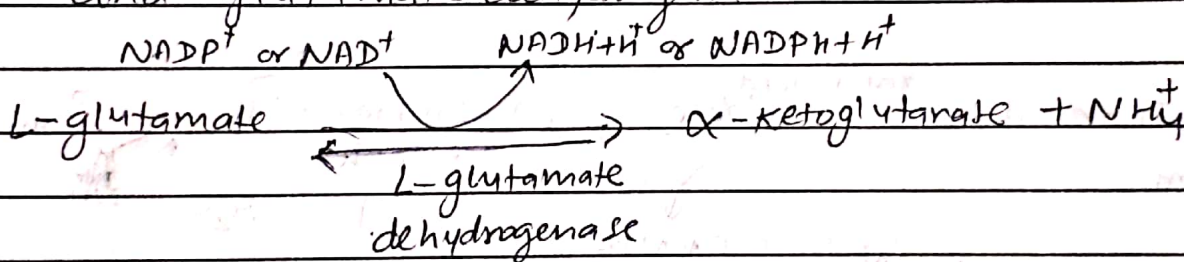 NADP⁺ or NAD⁺ NADH+H⁺ or NADPH+H⁺
L-glutamate α-ketoglutarate + NH₄⁺
L-glutamate
dehydrogenase